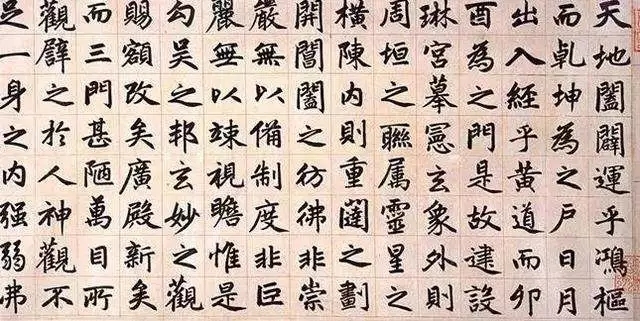 天地闔闢運乎鴻樞
而乹坤為之户日月
出入經乎黄道而夘
酉為之門是故建設
琳宮摹憲玄象外則
周垣之聯属靈星之
橫陳内則重闥之劃
開閶闔之彷彿非崇
嚴無以備制度非巨
麗無以竦視瞻惟是
勾吴之邦玄妙之觀
賜額改矣廣殿新矣
而三門甚陋萬目所
觀譬之於人神觀不
足一身之内强弱弗